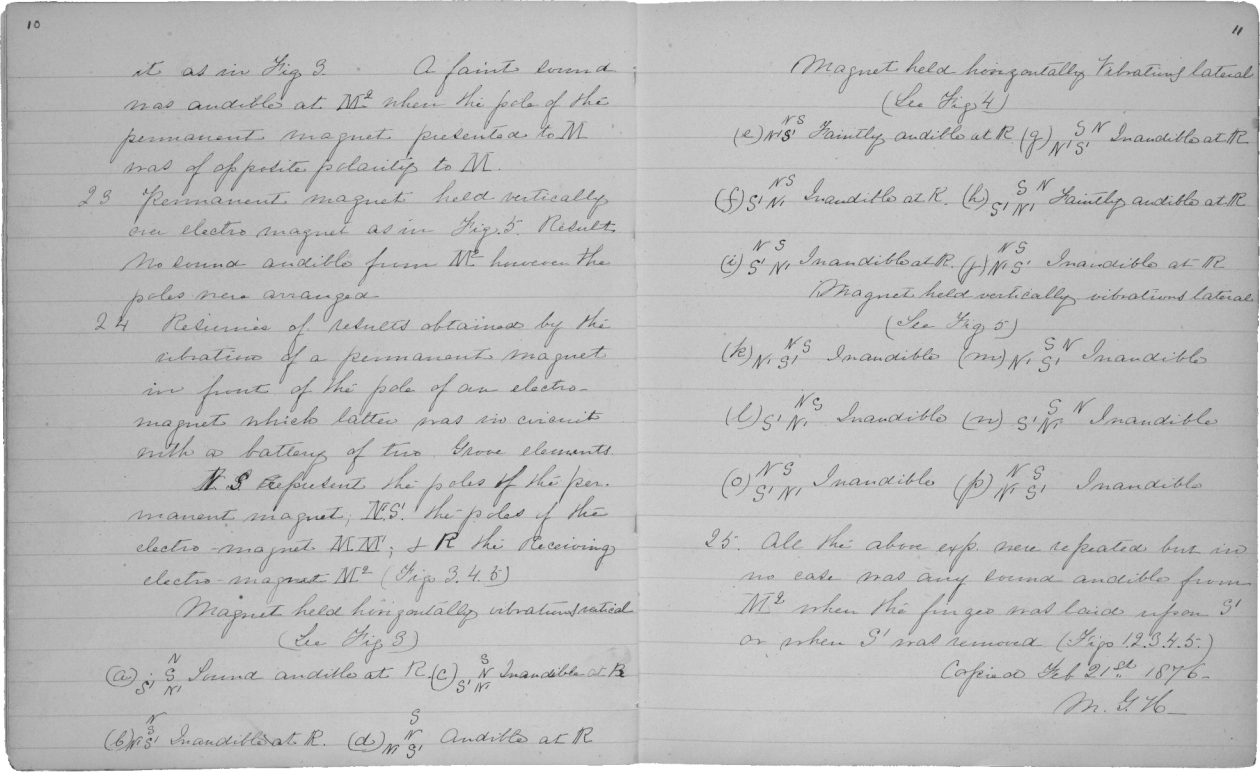 10
it as in Fig 3. A faint sound
was audible at M² when the pole of the
permanent magnet presented to M
was of opposite polarity to M.
23 Permanent magnet held vertically
over electro magnet as in Fig. 5. Result
No sound audible from M² however the
poles were arranged
24 Resumée of results obtained by the
vibration of a permanent magnet
in front of the pole of an electro-
magnet which latter was in circuit
with a battery of two Grove elements.
N. S represent the poles of the per-
manent magnet; N'.S'. the poles of the
electro-magnet M M'; & R the Receiving
electro-magnet M² (Figs 3.4.5)
Magnet held horizontally vibrations vertical
(See Fig 3)
N S
(a) S Sound audible at R. (c) N Inaudible at R
S' N' S' N'
N S
(b) S Inaudible at R. (d) N Audible at R
N' S' N' S'
11
Magnet held horizontally Vibrations lateral
(See Fig 4)
N S S N
(e) N' S' Faintly audible at R (g) N' S' Inaudible at R
N S S N
(f) S' N' Inaudible at R. (h) S' N' Faintly audible at R
N S N S
(i) S' N' Inaudible at R. (j) N' S' Inaudible at R
Magnet held vertically vibrations lateral
(See Fig 5)
N S S N
(k) N' S' Inaudible (m) N' S' Inaudible
N S S N
(l) S' N' Inaudible (n) S' N' Inaudible
N S N S
(o) S' N' Inaudible (p) N' S' Inaudible
25. All the above exp. were repeated but in
no case was any sound audible from
M² when the finger was laid upon S'
or when S' was removed (Figs 1.2.3.4.5.)
Copied Feb 21st 1876.
M. G. H.